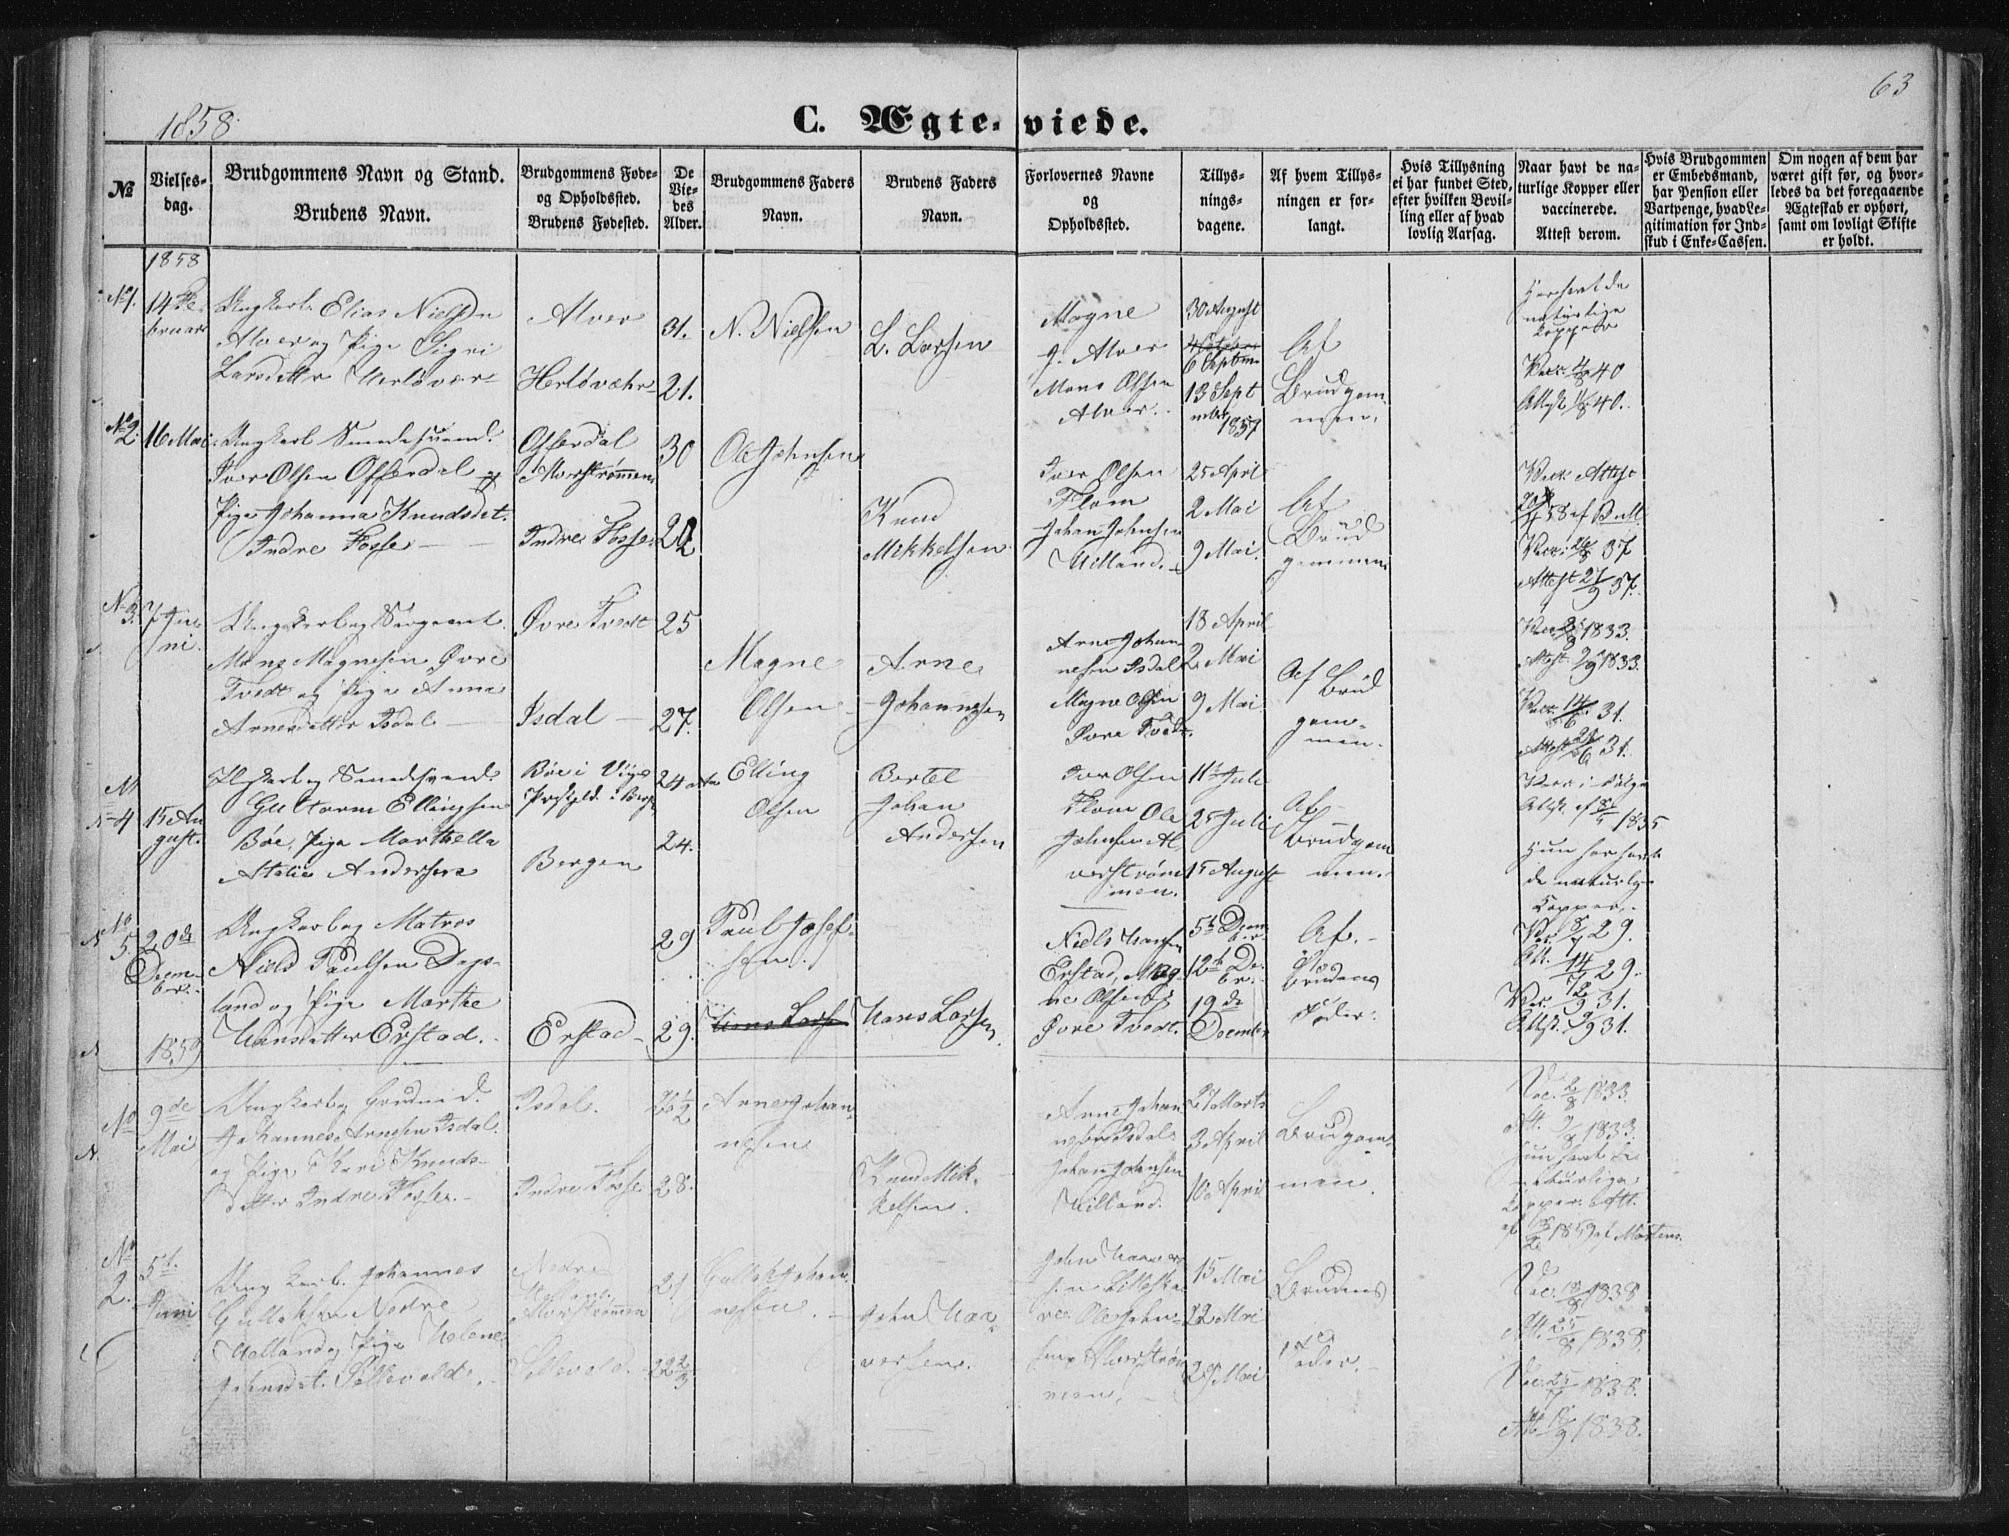 63
1858
C. Ægte-viede.
№
Vielses-
dag.
Brudgommens Navn og Stand.
Brudens Navn.
Brudgommens Føde-
og Opholdssted.
Brudens Fødested.
De
Vie-
des
Alder.
Brudgommens Faders
Navn.
Brudens Faders
Navn.
Forlovernes Navne
og
Opholdssted.
Tillys-
nings-
dagene.
Af hvem Tillys-
ningen er for-
langt.
Hvis Tillysning
ei har fundet Sted,
efter hvilken Bevil-
ling eller af hvad
lovlig Aarsag.
Naar havt de na-
turlige Kopper eller
vaccinerede.
Attest derom.
Hvis Brudgommen
er Embedsmand,
har Pension eller
Vartpenge, hvad Le-
gitimation for Ind-
skud i Enke-Cassen.
Om nogen af dem har
været gift før, og hvor-
ledes da det foregaaende
Ægteskab er ophørt,
samt om lovligt Skifte
er holdt.
1858
No 1.
14 Fe-
bruar
Ungkarl Elias Nielsen
Alver og Pige Signi
Larsdatter Herløvær
Alver
Herløvæhr
31.
21.
N. Nielsen
L. Larsen
Magne
J. Alver
Mons Olsen
Alver.
30 August
6 Septem
13 Sept
mber
1857
Af
Brudgom
men.
Har havt de
naturlige
kopper
Vac. 4/8 40
Attest 40.
No 2.
16 Mai
Ungkarl Smedesvend
Iver Olsen Offerdal og
Pige Johanna Knudsdat.
Indre Fosse
Offerdal
Alverstrømmen
Indre Fosse
30
22
Ole Johnsen
Knud
Mikkelsen
Iver Olsen
Flom
Johan Johnsen
Uilland.
25 April
2 Mai
9 Mai.
Af
Brud
gommen
Vac. Attest
58 af Bull
Vac. 26/8 37
Attest 27/9 37.
No 3.
7 Ju-
ni.
Ungkarl og Sergeant
Mons Magnesen Øvre
Tvedt og Pige Anna
Arnesdatter Isdal
Øvre Tvedt
Isdal
25
27.
Magne
Olsen
Arne
Johannesen
Arne Johan
nesen Isdal
Magne Olsen
Øvre Tvedt.
18 April
2 Mai
9 Mai
Af Brud
gom-
men.
Vac. 1833.
Attest 2/9 1833.
Vac. 14/6 31.
Attest 21/6 31.
No 4
15 Au
gust.
Ungkarl og Smedsvend
Guttorm Ellingsen
Bøe, Pige Marthella
Atalie Andersen
Bøe i
Bergen
24
24.
Elling
Olsen
Bertel
Johan
Andersen
Iver Olsen
Flom Ole
Johnsen Al
verstrøm
men.
11te Juli
25 Juli
15 August
Af
Brudgom
men.
1835
Hun har havt
de naturlige
Kopper.
No 5.
20de
Decem-
ber.
Ungkarl og Matros
Niels Paulsen Dags-
land og Pige Marthe
Hansdatter Erstad.
Erstad
29
29.
Paul Josef-
sen.
Hans Larsen
Hans Larsen
Niels Hansen
Erstad, Mag-
ne Olsen
Øvre Tvedt.
5te Decem
ber
12te De-
br.
19de
December
Af
Brudens
Fader.
Vac. 8/7 29.
Att. 14/7 29.
Vac. 2/9 31.
Attest. 9/9 31.
1859
No
9de
Mai
Ungkarl og Gaardmd.
Johannes Arnesen Isdal
og Pige Kari Knuds-
datter Indre Fosse.
Isdal.
Indre Fosse
26 1/2
28.
Arne Johan
nesen
Knud Mik-
kelsen.
Arne Johan
nesen Isdal
Johan Johnsen
Uilland.
27 Marts
3 April
10 April
Brudgom-
men.
Vac. 2/8 1833.
Att. 9/8 1833.
Hun havt de
naturlige
Kopper. Att.
1859 af Martens
No 2.
5te
Juni
Ung karl Johannes
Gullaksen Nedre
Uelland og Pige Helene
Johnsdt. Sellevold.
Nedre
Uelland.
Alverstrømmen
Sellevold.
22 2/3
Gullak Johan-
nesen.
John Haa-
versen.
John Haaver
sen
Ole John-
sen Alverstrøm
men.
15 Mai
22 Mai
29 Mai
Brudens
Fader.
Vac. 18/8 1838
Att. 25/8 1838.
Vac. 1838.
Att. 1838.